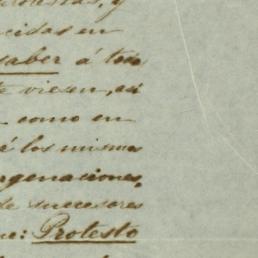 y
cidas en
saber á to
e viesen, asi
como en
é los mismos
rgenaciones,
de sucesores
e: Protesto